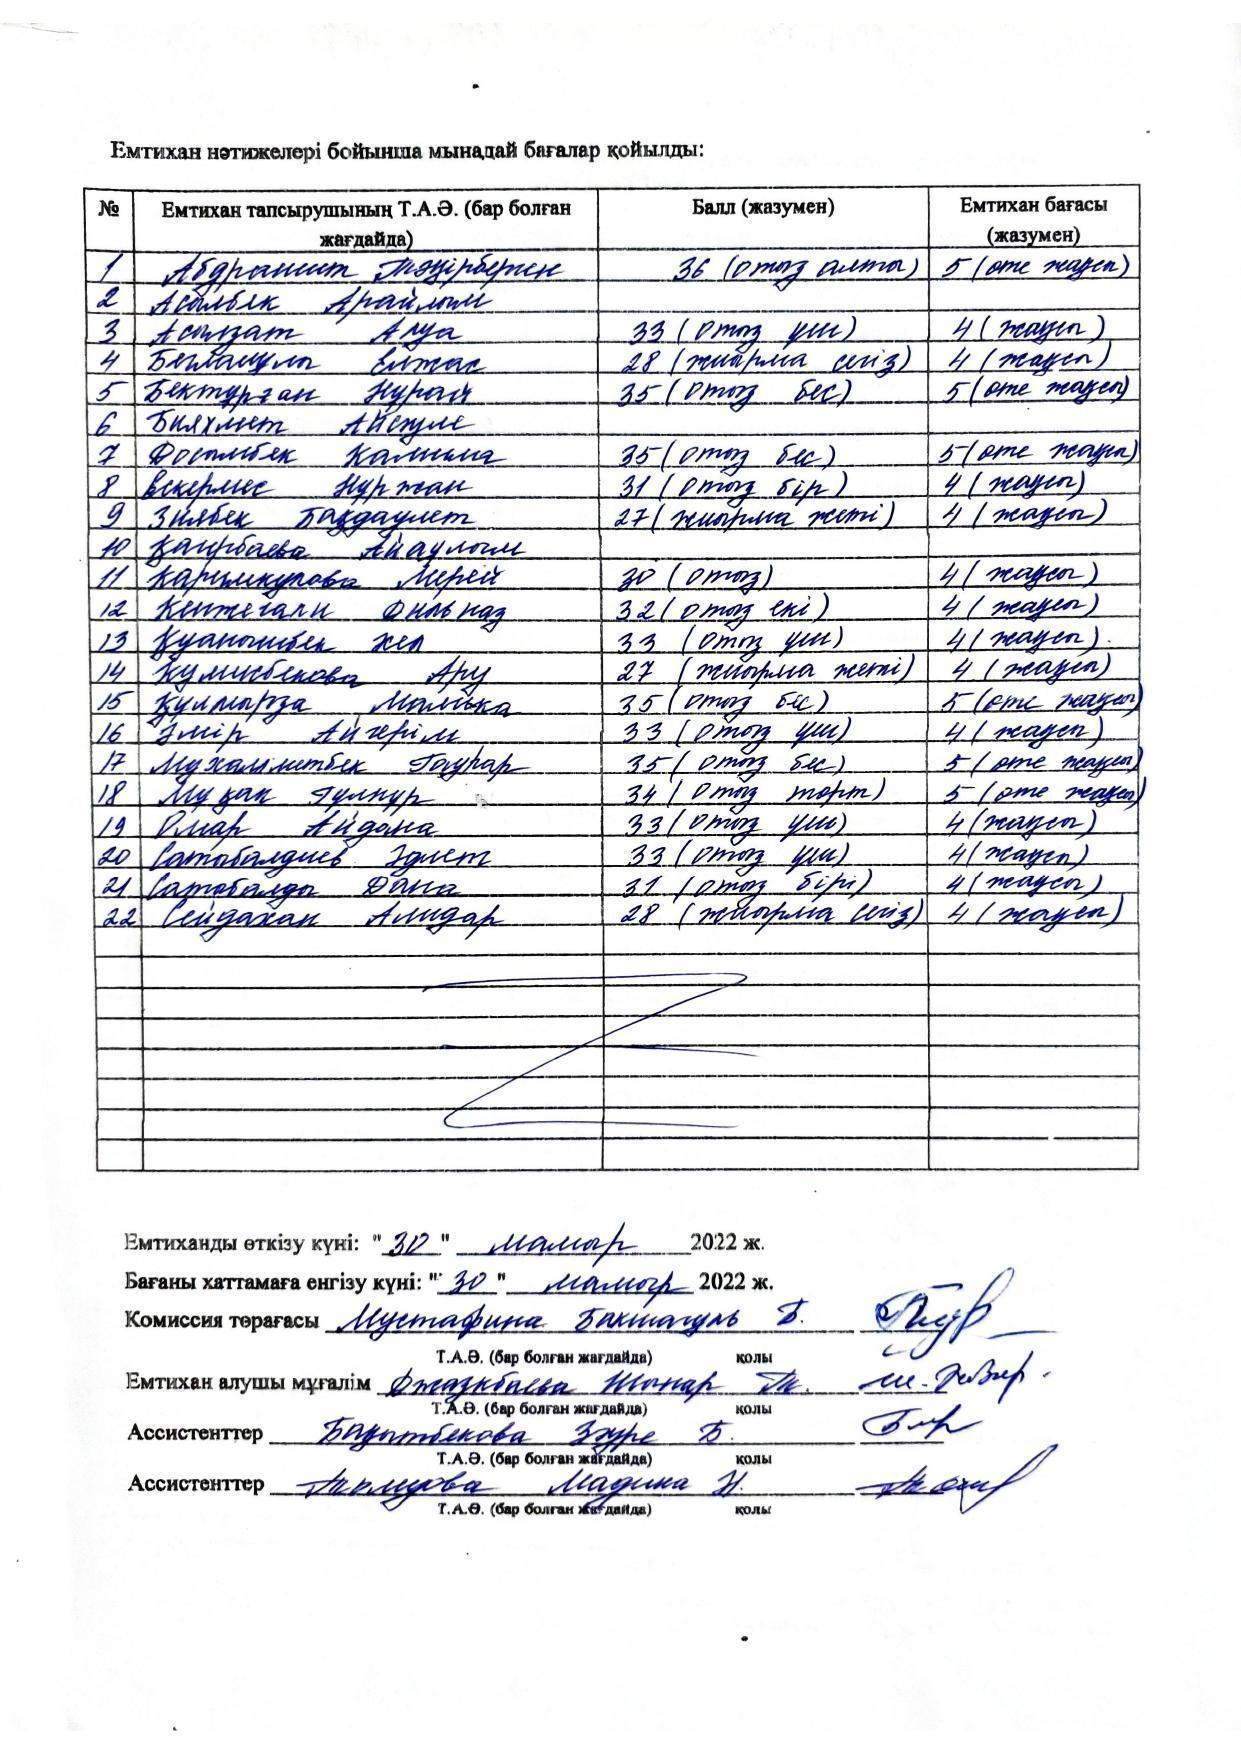 Емтихан нәтижелері бойынша мынадай бағалар қойылды:
№ Емтихан тапсырушының Т.А.Ә. (бар болған жағдайда) Балл (жазумен) Емтихан бағасы (жазумен)
1 Абдрашит Тәңірберген 36 (отыз алты) 5 (өте жақсы)
2 Асылбек Арайлым
3 Асылзат Алуа 33 (отыз үш) 4 (жақсы)
4 Елжас 28 (жиырма сегіз) 4 (жақсы)
5 Бектұрған Нұрай 35 (отыз бес) 5 (өте жақсы)
6 Бияхмет
7 Досымбек Камила 35 (отыз бес) 5 (өте жақсы)
8 Ескермес Нұржан 31 (отыз бір) 4 (жақсы)
9 Зиябек Бақдаулет 27 (жиырма жеті) 4 (жақсы)
10 Қаирбаева Айаулым
11 Каримкулова Мерей 30 (отыз) 4 (жақсы)
12 Кенжегали Дильназ 32 (отыз екі) 4 (жақсы)
13 Қуанышбек 33 (отыз үш) 4 (жақсы).
14 Кумисбекова Ару 27 (жиырма жеті) 4 (жақсы)
15 Құлмырза Малика 35 (отыз бес) 5 (өте жақсы)
16 Әмір Айгерім 33 (отыз үш) 4 (жақсы)
17 Мухамметбек Гаухар 35 (отыз бес) 5 (өте жақсы)
18 Мұқан Гүлнұр 34 (отыз төрт) 5 (өте жақсы)
19 Омар Айдана 33 (отыз үш) 4 (жақсы)
20 Сатыбалдиев Әділет 33 (отыз үш) 4 (жақсы)
21 Сатыбалды Дана 31 (отыз бірі) 4 (жақсы)
22 Сейдахан Алидар 28 (жиырма сегіз) 4 (жақсы)
Емтиханды өткізу күні: "30" мамыр 2022 ж.
Бағаны хаттамаға енгізу күні: "30" мамыр 2022 ж.
Комиссия төрағасы Мустафина Бакшагуль Б.
Т.А.Ә. (бар болған жағдайда) қолы
Емтихан алушы мұғалім Шынар
Т.А.Ә. (бар болған жағдайда) қолы
Ассистенттер Бақытбекова Зәуре Б.
Т.А.Ә. (бар болған жағдайда) қолы
Ассистенттер Мадина Н.
Т.А.Ә. (бар болған жағдайда) қолы